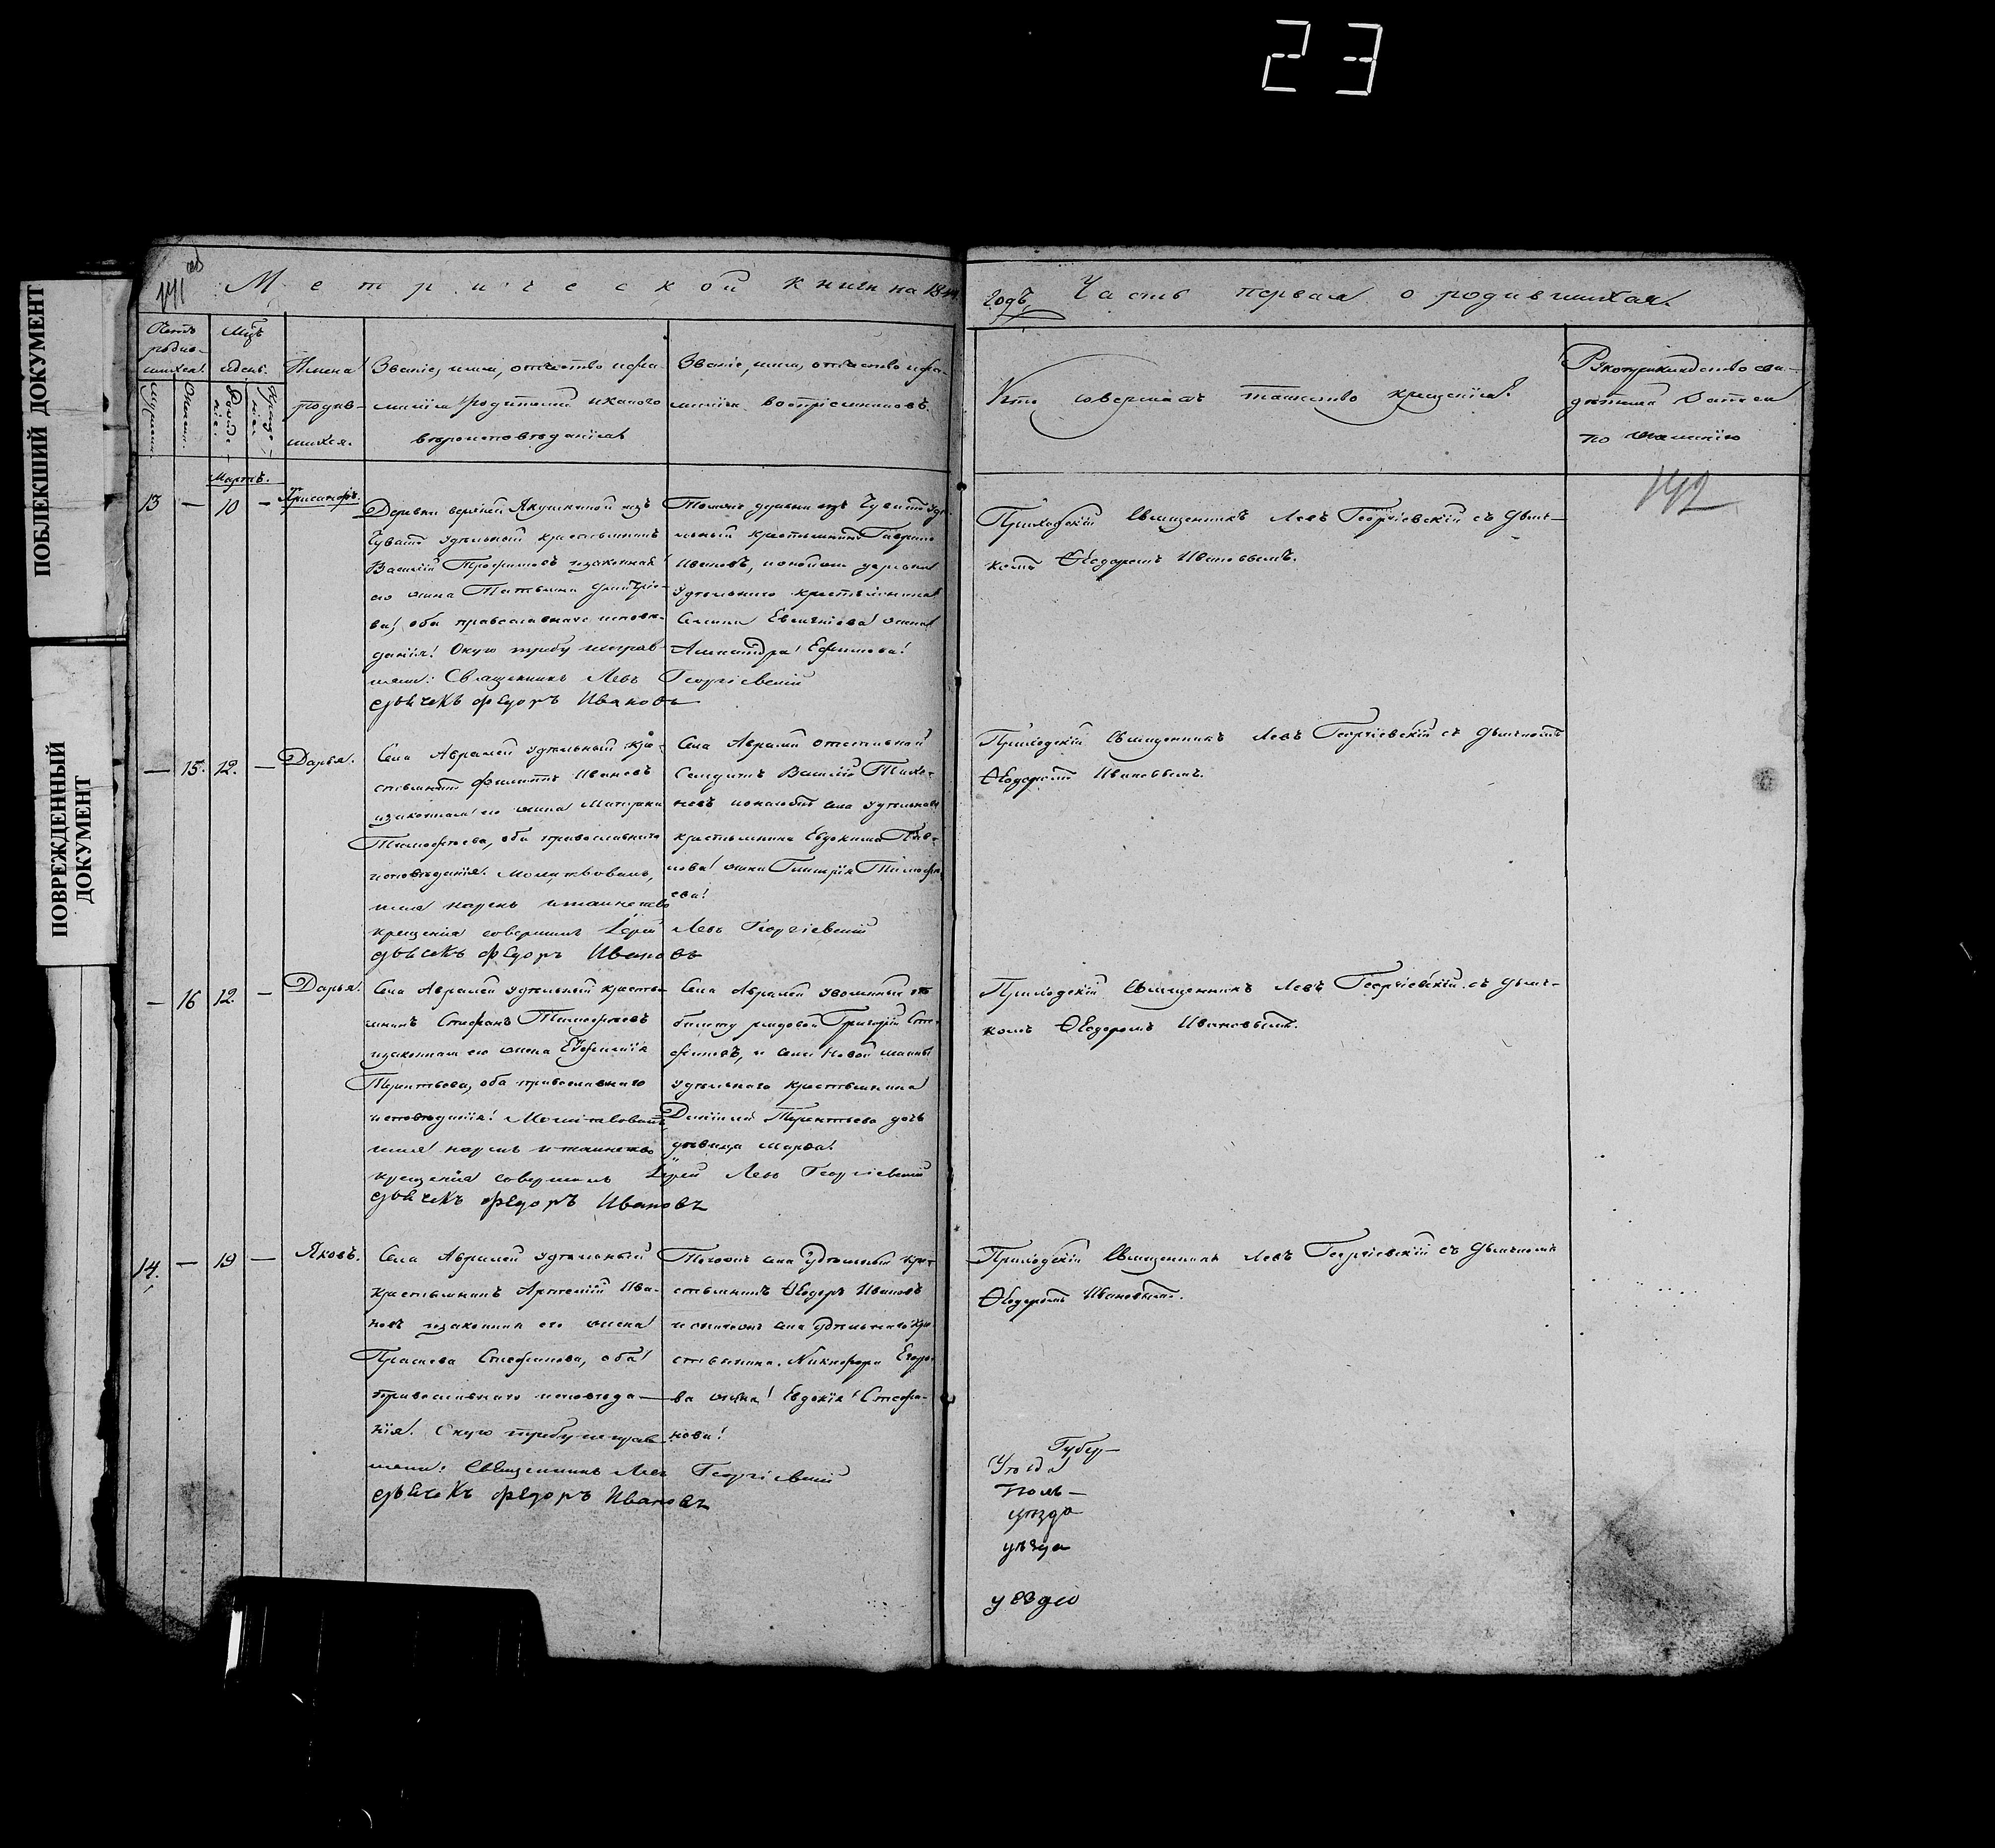 23
ПОБЛЕКШИЙ ДОКУМЕНТ
ПОВРЕЖДЕННЫЙ
ДОКУМЕНТ
Метрической книги на 18
годъ Часть первая о родившихся.
Имена
родив-
шихся.
Званіе, имя, отчество и фа-
милія родителей и какого
вѣроисповѣданія
Званіе, имя, отчество и фа-
милія воспріемниковъ.
Кто совершалъ таинство крещенія?
Рукоприкладство сви-
дѣтелей записи
по желанію
192
Мартъ.
13 — 10 — Хрисанфъ.
Деревни верхней Якушкиной изъ
Чувашъ удѣльный крестьянинъ
Василій Трофимовъ изаконная
его жена Татьяна Дмитріе-
ва, оба православнаго исповѣ-
данія.
Священникъ Левъ Георгіевскій
дьячекъ Федоръ Ивановъ
Тойже деревни изъ Чувашъ удѣ-
льный крестьянинъ Гаврило
Ивановъ, итойже деревни
удѣльнаго крестьянина
жена
Александра Ефимова
Приходскій Священникъ Левъ Георгіевскій съ дьяч-
комъ Ѳеодоромъ Ивановымъ.
— 15. 12. — Дарья.
Села Авралей удѣльный кре-
стьянинъ Филиппъ Ивановъ
изаконная его жена Матрона
Тимофеева, оба православнаго
исповѣданія. Молитвовалъ,
имя нарекъ итаинство
крещенія совершилъ Іерей Левъ Георгіевскій
дьячекъ Федоръ Ивановъ
Села Авралей отставной
Василій Тихо-
новъ итогоже села удѣльнаго
крестьянина Евдокима Пав-
лова жена Тимофе-
ева
Приходскій Священникъ Левъ Георгіевскій съ дьячкомъ
Ѳеодоромъ Ивановымъ.
— 16 12. — Дарья.
Села Авралей удѣльный кресть-
янинъ Стефанъ Тимофеевъ
изаконная его жена Евфимія
Терентьева, оба православнаго
исповѣданія. Молитвовалъ,
имя нарекъ итаинство
крещенія совершилъ Іерей Левъ Георгіевскій
дьячекъ Федоръ Ивановъ
Села Авралей уволенный по
билету рядовой Григорій Сте-
фановъ, и села Новой
удѣльнаго крестьянина
Терентьева дочь
дѣвица Марѳа.
Приходскій Священникъ Левъ Георгіевскій съ дьяч-
комъ Ѳеодоромъ Ивановымъ.
14. — 19 — Яковъ.
Села Авралей удѣльный
крестьянинъ Артемій Ива-
новъ изаконная его жена
Стефанова, оба
православнаго исповѣда-
нія.
Священникъ Левъ Георгіевскій
дьячекъ Федоръ Ивановъ
Тогоже села удѣльный кре-
стьянинъ Ѳеодоръ Ивановъ
итогоже села удѣльнаго кре-
стьянина Никифора Егоро-
ва жена Евдокія Стефа-
нова
Приходскій Священникъ Левъ Георгіевскій съ дьячкомъ
Ѳеодоромъ Ивановымъ.
Губер-
уѣзда